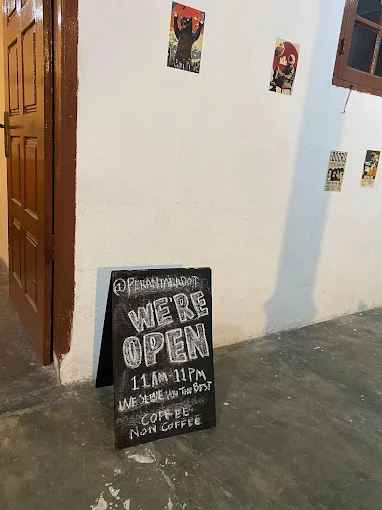 @PERANTABADOT
WE'RE
OPEN
11 AM-11 PM
WE SERVE YOU THE BEST
COFFEE
NON COFFEE